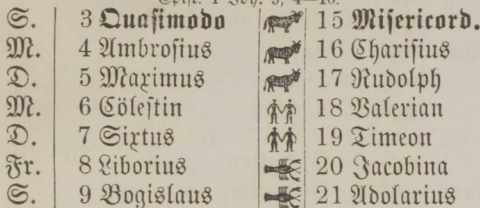 Epist. 1 Joh. 5, 4—10.
S. 3 Quasimodo 15 Misericord.
M. 4 Ambrosius 16 Charisius
D. 5 Maximus 17 Rudolph
M. 6 Cölestin 18 Valerian
D. 7 Sixtus 19 Timeon
Fr. 8 Liborius 20 Jacobina
S. 9 Bogislaus 21 Adolarius